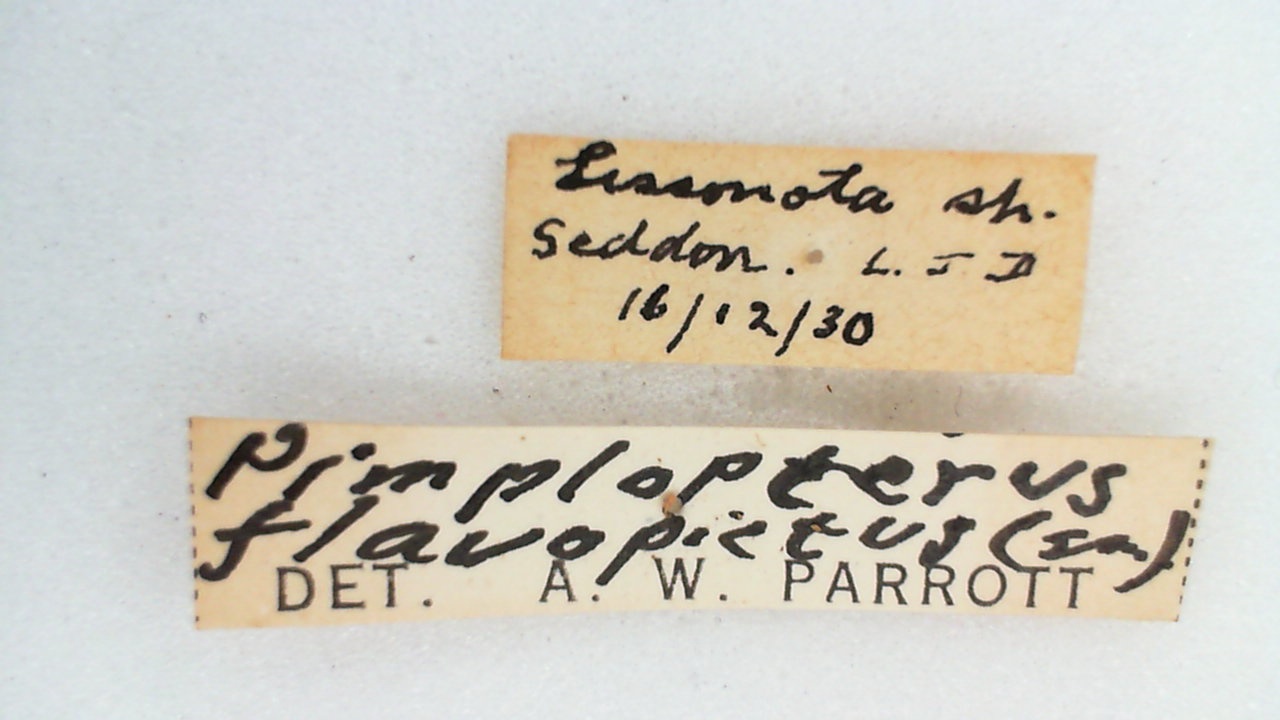 Lissonota sp.
Seddon. L. J D
16/12/30
Pimplopterus
flavopictus (sm)
DET. A. W. PARROTT